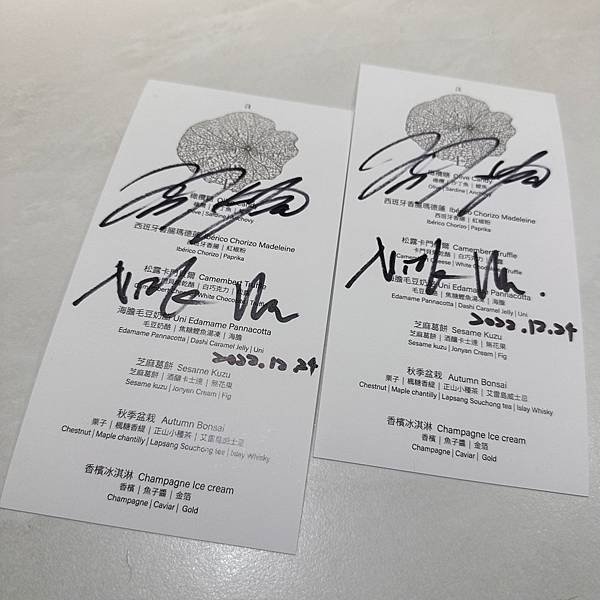 橄欖糖 Olive Candy
橄欖 | 沙丁魚 | 鯷魚
Olive | Sardine | Anchovy
西班牙香腸瑪德蓮 Ibérico Chorizo Madeleine
西班牙香腸 | 紅椒粉
Ibérico Chorizo | Paprika
松露卡門貝爾 Camembert Truffle
卡門貝爾乾酪 | 白巧克力
Camembert Cheese | White Chocolate | Truffle
海膽毛豆奶酪 Uni Edamame Pannacotta
毛豆奶酪 | 焦糖鰹魚湯凍 | 海膽
Edamame Pannacotta | Dashi Caramel Jelly | Uni
2022.12.24
芝麻葛餅 Sesame Kuzu
芝麻葛餅 | 酒釀卡士達 | 無花果
Sesame kuzu | Jonyan Cream | Fig
秋季盆栽 Autumn Bonsai
栗子 | 楓糖香緹 | 正山小種茶 | 艾雷島威士忌
Chestnut | Maple chantilly | Lapsang Souchong tee | Islay Whisky
香檳冰淇淋 Champagne Ice cream
香檳 | 魚子醬 | 金箔
Champagne | Caviar | Gold
橄欖糖 Olive Candy
橄欖 | 沙丁魚 | 鯷魚
Olive | Sardine | Anchovy
西班牙香腸瑪德蓮 Ibérico Chorizo Madeleine
西班牙香腸 | 紅椒粉
Ibérico Chorizo | Paprika
松露卡門貝爾 Camembert Truffle
卡門貝爾乾酪 | 白巧克力
Cheese | White Chocolate | Truffle
海膽毛豆奶酪 Uni Edamame Pannacotta
毛豆奶酪 | 焦糖鰹魚湯凍 | 海膽
Edamame Pannacotta | Dashi Caramel Jelly | Uni
2022.12.24
芝麻葛餅 Sesame Kuzu
芝麻葛餅 | 酒釀卡士達 | 無花果
Sesame kuzu | Jonyan Cream | Fig
秋季盆栽 Autumn Bonsai
栗子 | 楓糖香緹 | 正山小種茶 | 艾雷島威士忌
Chestnut | Maple chantilly | Lapsang Souchong tee | Islay Whisky
香檳冰淇淋 Champagne Ice cream
香檳 | 魚子醬 | 金箔
Champagne | Caviar | Gold